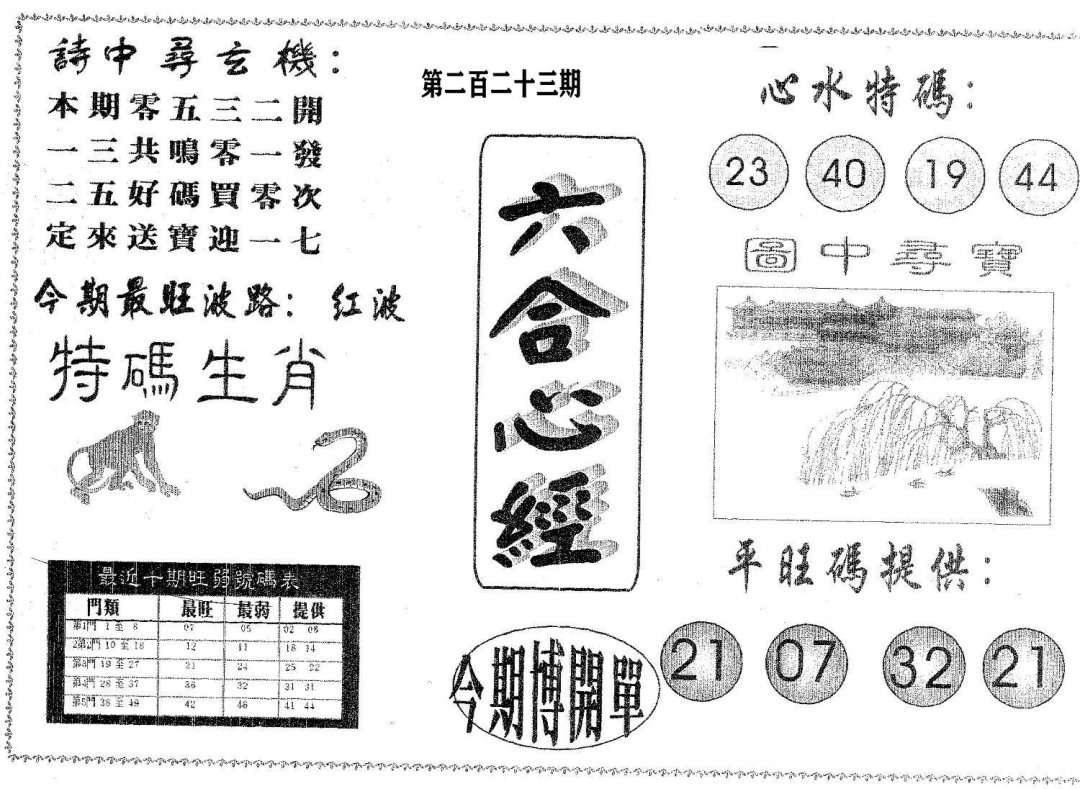 詩中尋玄機：
本期零五三二開
一三共鳴零一發
二五好碼買零次
定來送寶迎一七
今期最旺波路： 红波
特碼生肖
最近十期旺弱號碼表
門類 最旺 最弱 提供
第1門 1 至 8 07 05 02 08
2第2門 10 至 18 12 11 18 14
第3門 19 至 27 21 24 25 22
第4門 28 至 37 36 32 31 31
第5門 38 至 49 42 46 41 44
第二百二十三期
六合心經
今期博開單
心水特碼：
23 40 19 44
圖中尋寶
平旺碼提供：
21 07 32 21